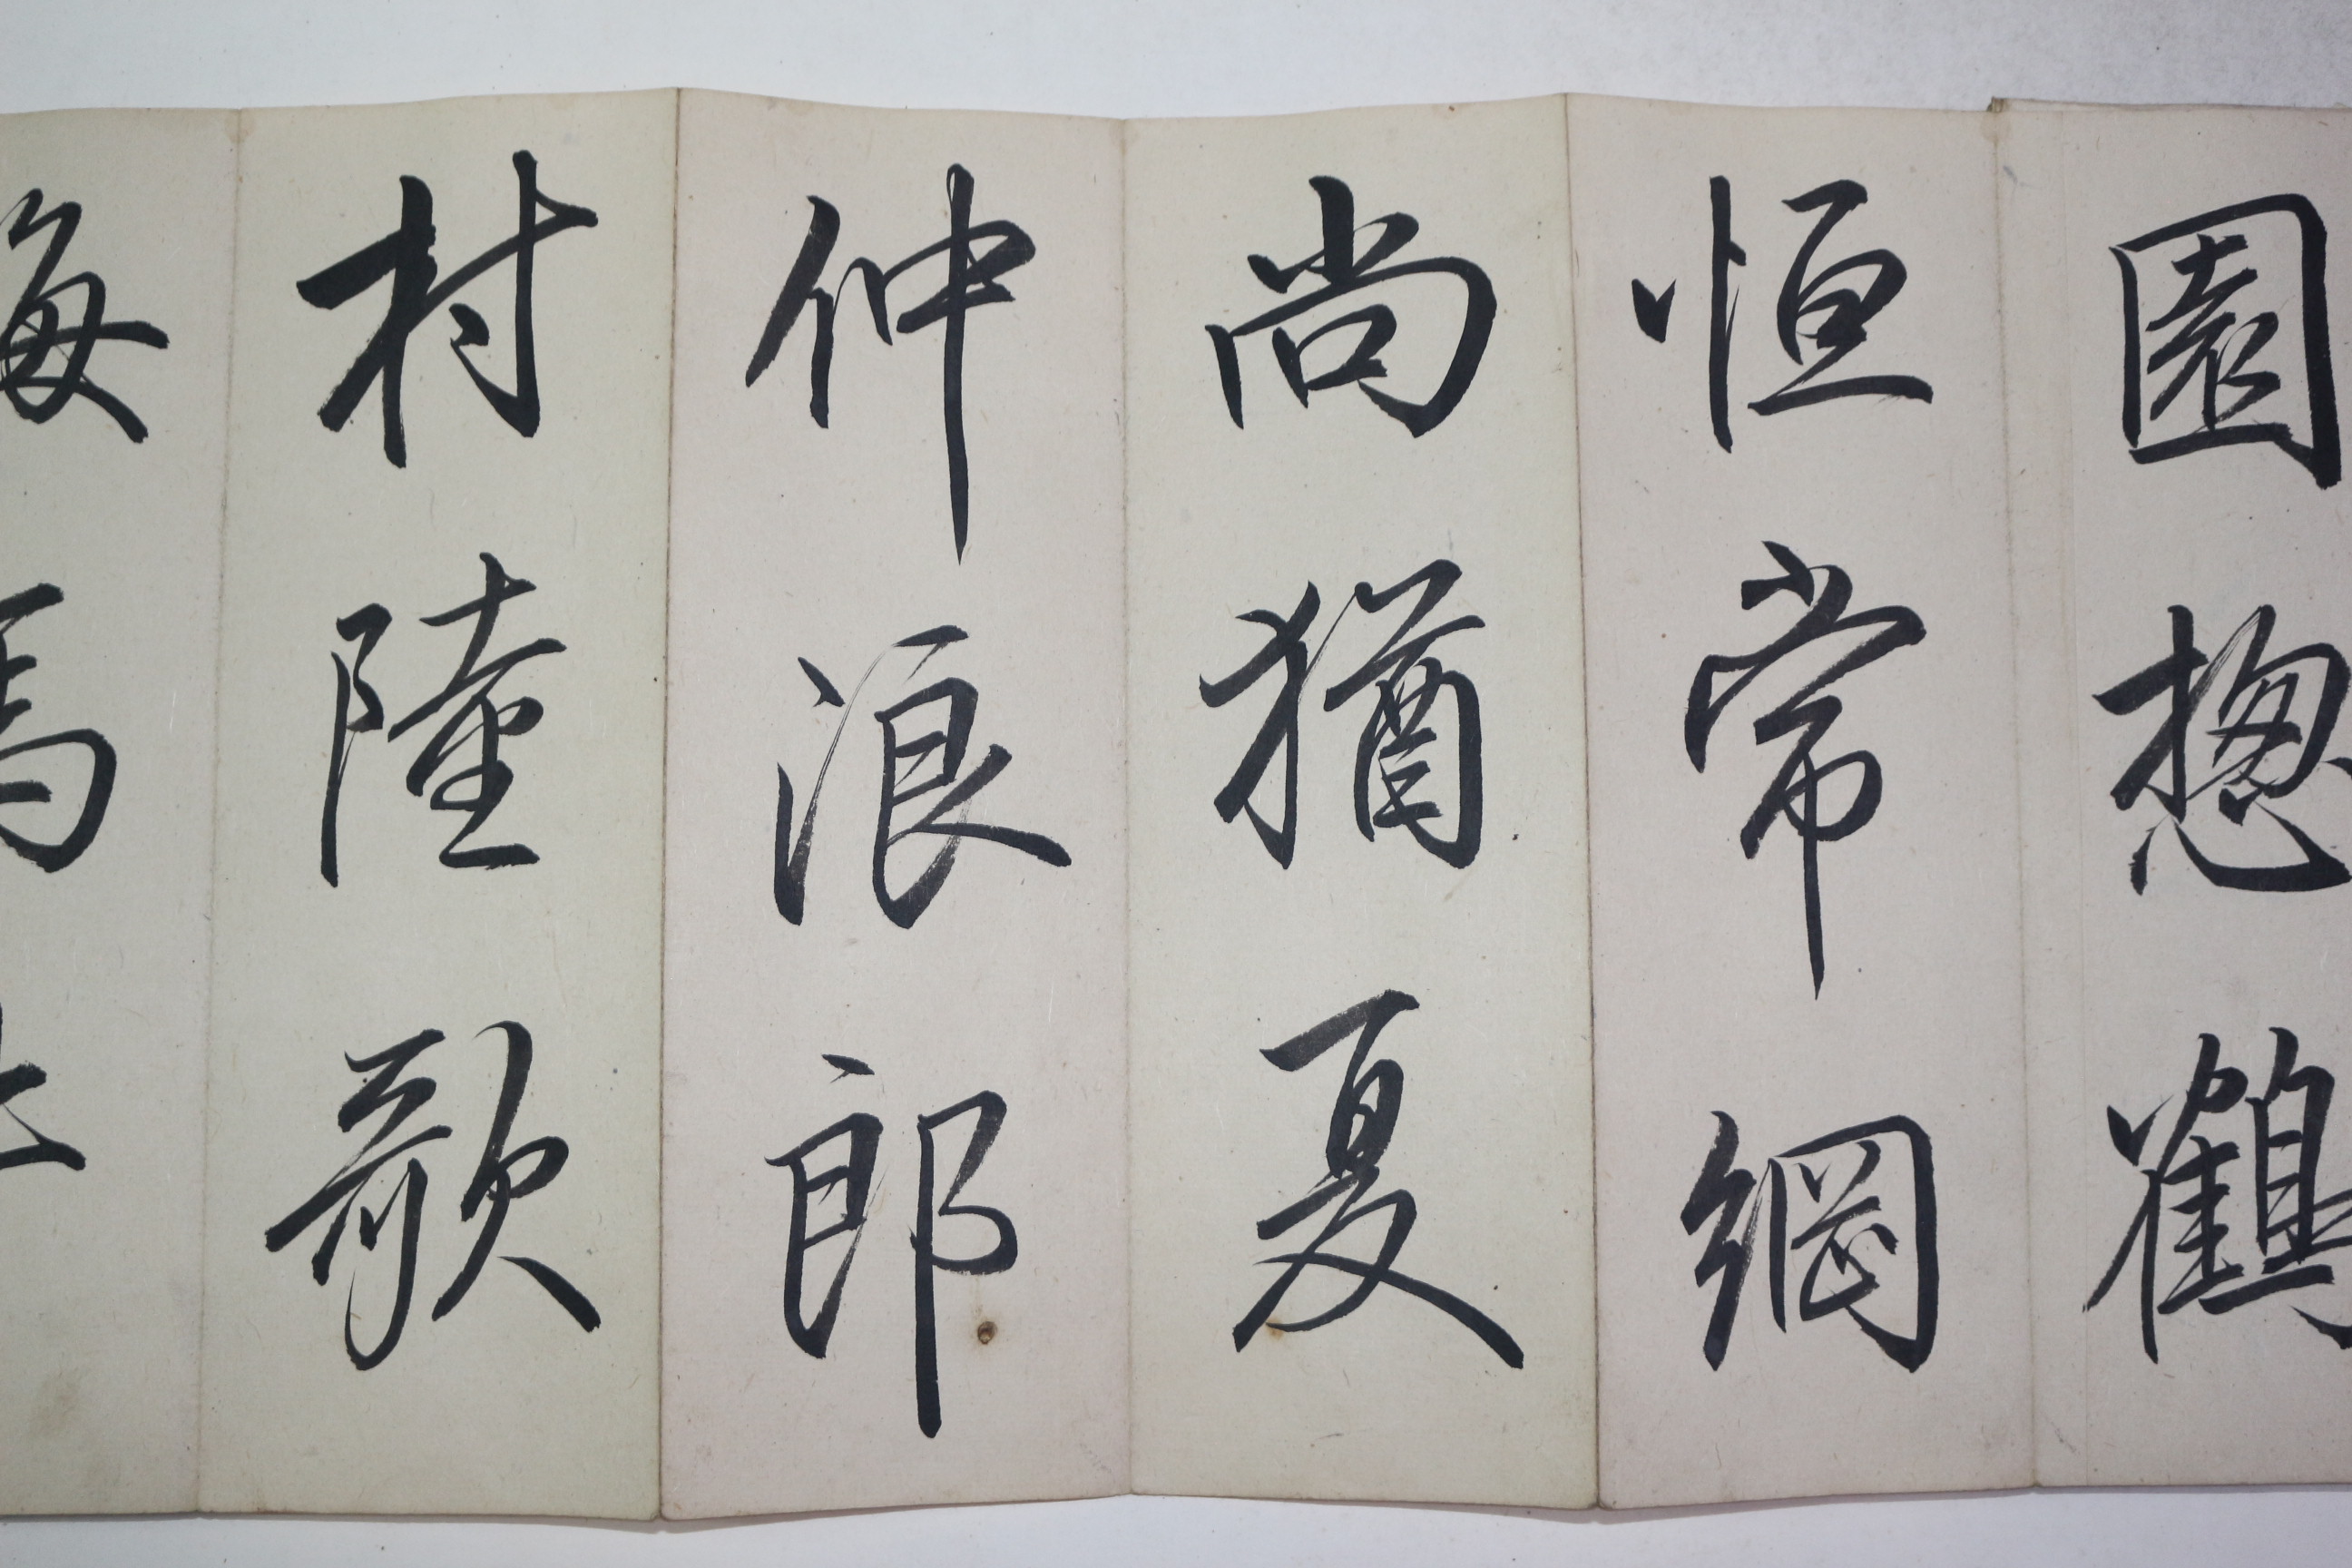 園揔鶴
恒常綱
尚猶夏
仲浪郎
村陸歌
海馬